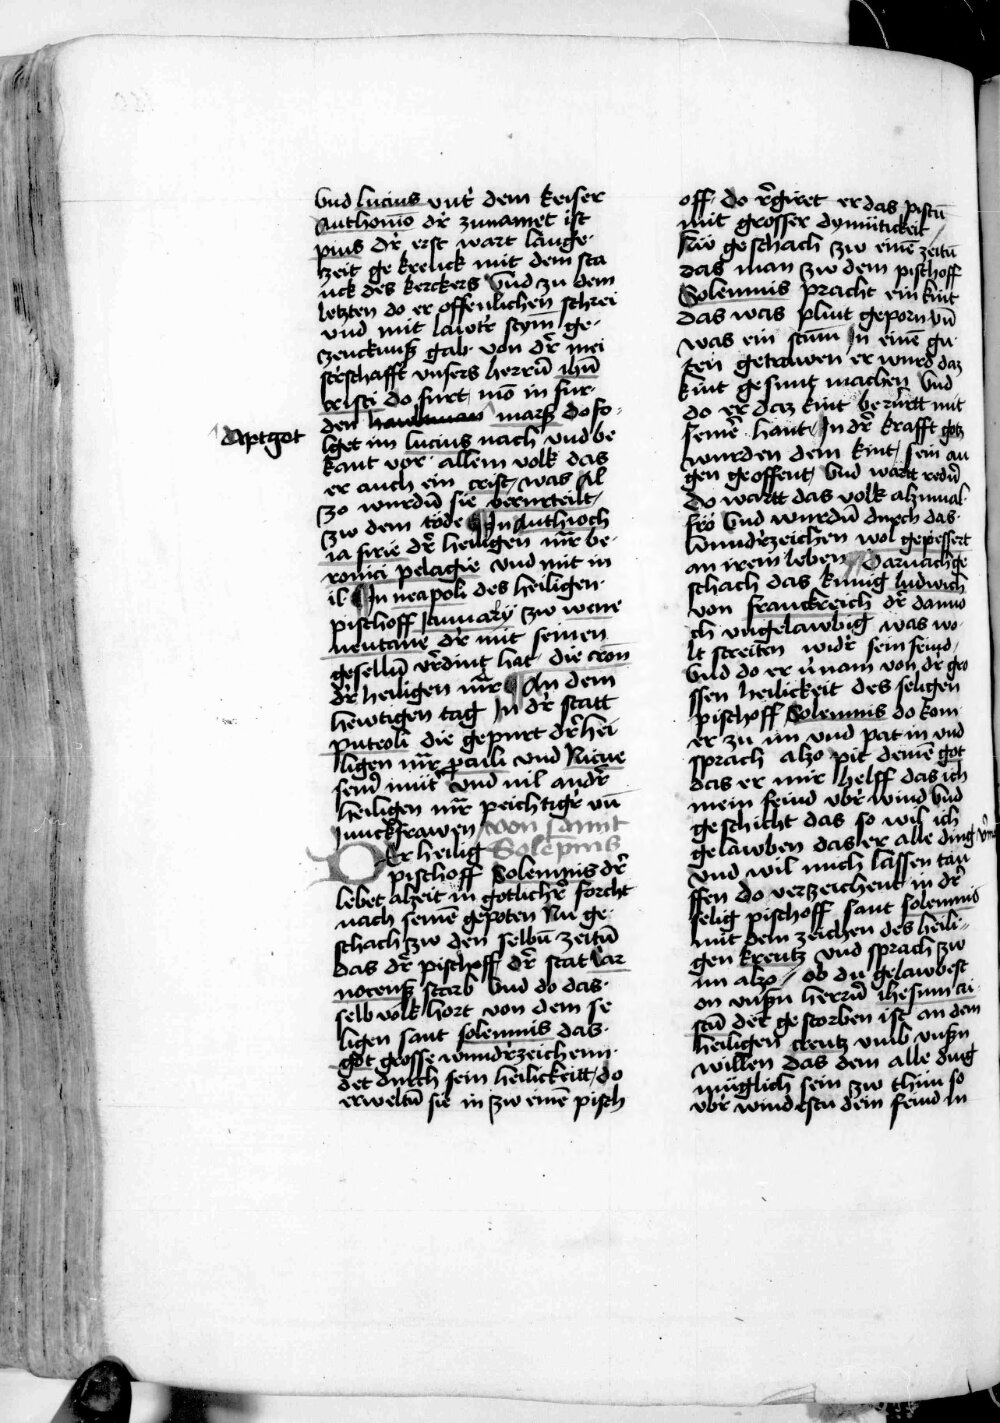 Vnd lucius vntr̄ dem keiser
Anthonio dr̄ zunamet ist
pius dr̄ erst wart lange
zeit gekrelick mit dem sta
uck des kerckers Vnd zu dem
letzten do er offenlichen schrei
vnd mit lawtr̄ stym̄ ge-
zeucknuß gab von dr̄ mei
strschafft vnsers herrn̄ ihū
cristi do furt mō in fur
den hawbtman marß do fo-
Aptgot
lget im lucius nach vnd be
kant vor allem volk das
er auch ein crist was Al
zo wurdn̄ sie vervrteilt
zw dem töde In Anthioch
ia sirie dr̄ heiligen mr̄ be-
ronici pelagie vnd mit in
il In neapoli des heiligen
pischoff Januarij zw wene
uentane dr̄ mit seinen
geselln̄ vr̄dint hat die cron
dr̄ heiligen mr̄ An dem
hewtigen tag In dr̄ statt
puteoli die gepurt dr̄ hei
ligen mr̄ proculi vnd Nicee
seinr̄ mutr̄ vnd vil andr̄
heiligen mr̄ peichtigr̄ vn̄
Junckfrawen von sannt
Der heilig Solēpnis
pischoff Solemnis dr̄
lebet alzeit in gotlichr̄ forcht
nach seinē gepoten Nu ge-
schach zw den selbn̄ zeitn̄
das dr̄ pischoff dr̄ stat car
notenß starb Vnd do das
selb volk hort von dem se
ligen sant solemnis das
got grosse wundrzeichenn
det durch sein heilickeitt do
erweltn̄ sie in zw einē pisch
off do rr̄giret er das pistū
mit grosser dymütickeit
Nw geschach zw einē zeitn̄
das man zw dem pischoff
Solemnis pracht ein kint
das was plint geporn vn̄
was ein stum̄ In einē gu
ten getrawen er wurd daz
kint gesunt machen Vnd
do er daz kint berürtt mit
seinē hant In dr̄ krafft gotz
wurden dem kint sein au
gen geoffent Vnd wartt redn̄
do wartt das volk alzumal
frö Vnd wurdn̄ durch das
wundrzeichen wol gepessert
an irem leben Darnach ge
schach das kunig ludwich
von franckreich dr̄ danno
ch vngelawbig was wo
lt streiten widr̄ sein feind
Vnd do er vr̄nam von dr̄ gro
ssen heilickeit des seligen
pischoff Solemnis do kom
er zu im vnd pat in vnd
sprach alzo pit deinē got
das er mir helff das ich
mein feind vbr̄ wind Vnd
geschicht das so wil ich
gelawben das er alle ding vr̄mag
vnd wil mich lassen tau
ffen do verzeichent in dr̄
selig pischoff sant solemnis
mit dem zeichen des heili-
gen kreutz vnd sprach zw
im alzo ob du gelawbest
on vnsn̄ herrn̄ ihesum cri
stū der gestorben ist an dem
heiligen creutz vmb vnsn̄
willen das dem alle ding
müglich sein zw thün so
vbr̄ windestu dein feind In